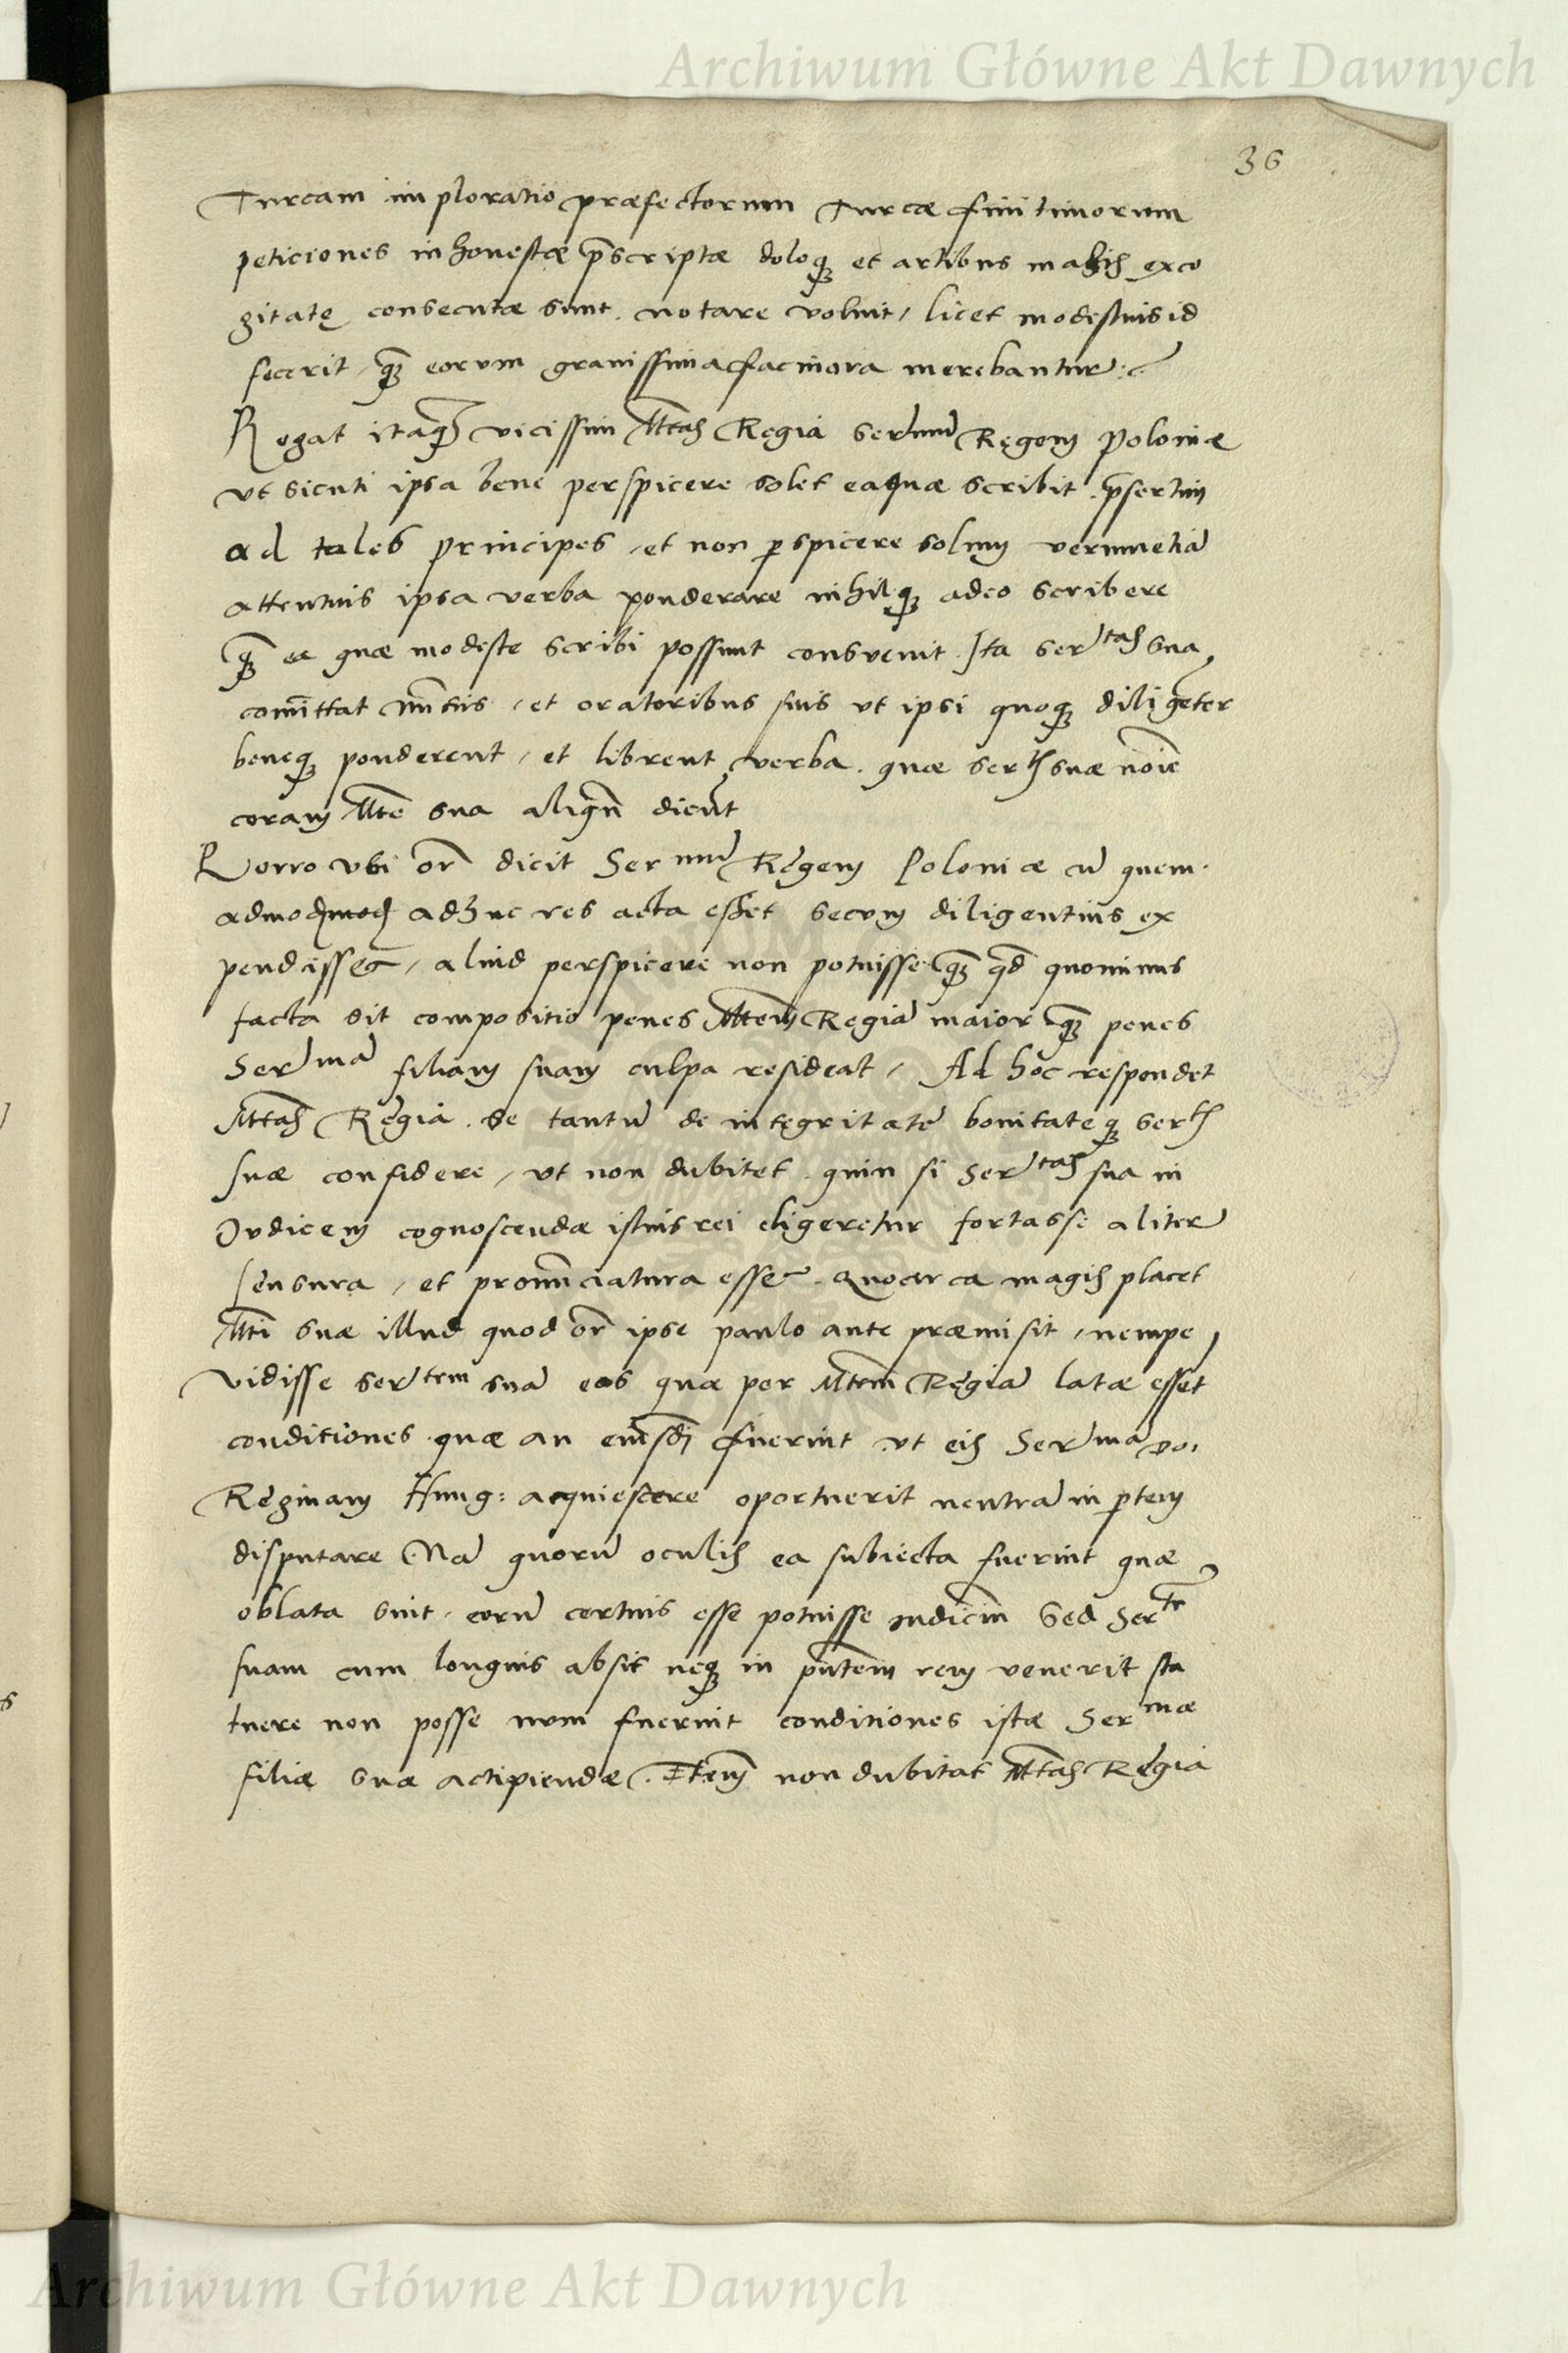 Archiwum Główne Akt Dawnych
36
Turcam imploratio præfectorum Turcæ finitimorum
peticiones inhonestæ p̄scriptæ doloq; et artibus malis exco
gitatę consecutæ sunt. notare voluit, licet modestius id
fecerit, q̄z eorum gravissima facinora merebantur.
Rogat itaq; vicissim Mtas Regia sermū Regem Poloniæ
vt sicuti ipsa bene perspicere solet ea quæ scribit p̄sertim
ad tales principes, et non perspicere solum verumetiā
attentius ipsa verba ponderare nihilq; adeo scribere
q̄z ea quæ modeste scribi possunt consvevit. Ita sertas sua
comittat nūtiis, et oratoribus suis vt ipsi quoq; diligēter
beneq; ponderent, et librent verba. quæ sertis suæ noīe
coram Mte sua aliqn̄ dicūt
Porro vbi or̄ dicit Sermū Regem Poloniæ cū quem
admod adhuc res acta esset secum diligentius ex
pendisset, aliud perspicere non potuisse q̄z qd quominus
facta sit compositio penes Mtem Regiā maior q̄z penes
Sermā filiam suam culpa resideat, Ad hoc respondet
Mtas Regia se tantū de integritate bonitateq; sertis
suæ confidere, vt non dubitet. quin si Sertas sua in
Iudicem cognoscendæ istius rei eligeretur fortasse aliter
sensura, et pronūciatura esset. Quocirca magis placet
Mti suæ illud quod or̄ ipse paulo ante præmisit, nempe
vidisse sertem suā eas quæ per Mtem Regiā latæ essēt
conditiones quæ an eiusdi fuerint vt eis Sermā do.
Reginam Hung: acquiescere oportuerit neutrā in ptem
disputare Nā quorū oculis ea subiecta fuerint quæ
oblata sint, eorū certius esse potuisse iudiciū Sed Serte
suam cum longius absit neq; in pn̄tem rem venerit sta
tuere non posse num fuerint conditiones istæ Sermæ
filiæ suæ accipiendæ. Etem̄ non dubitat Mtas Regia
Archiwum Główne Akt Dawnych